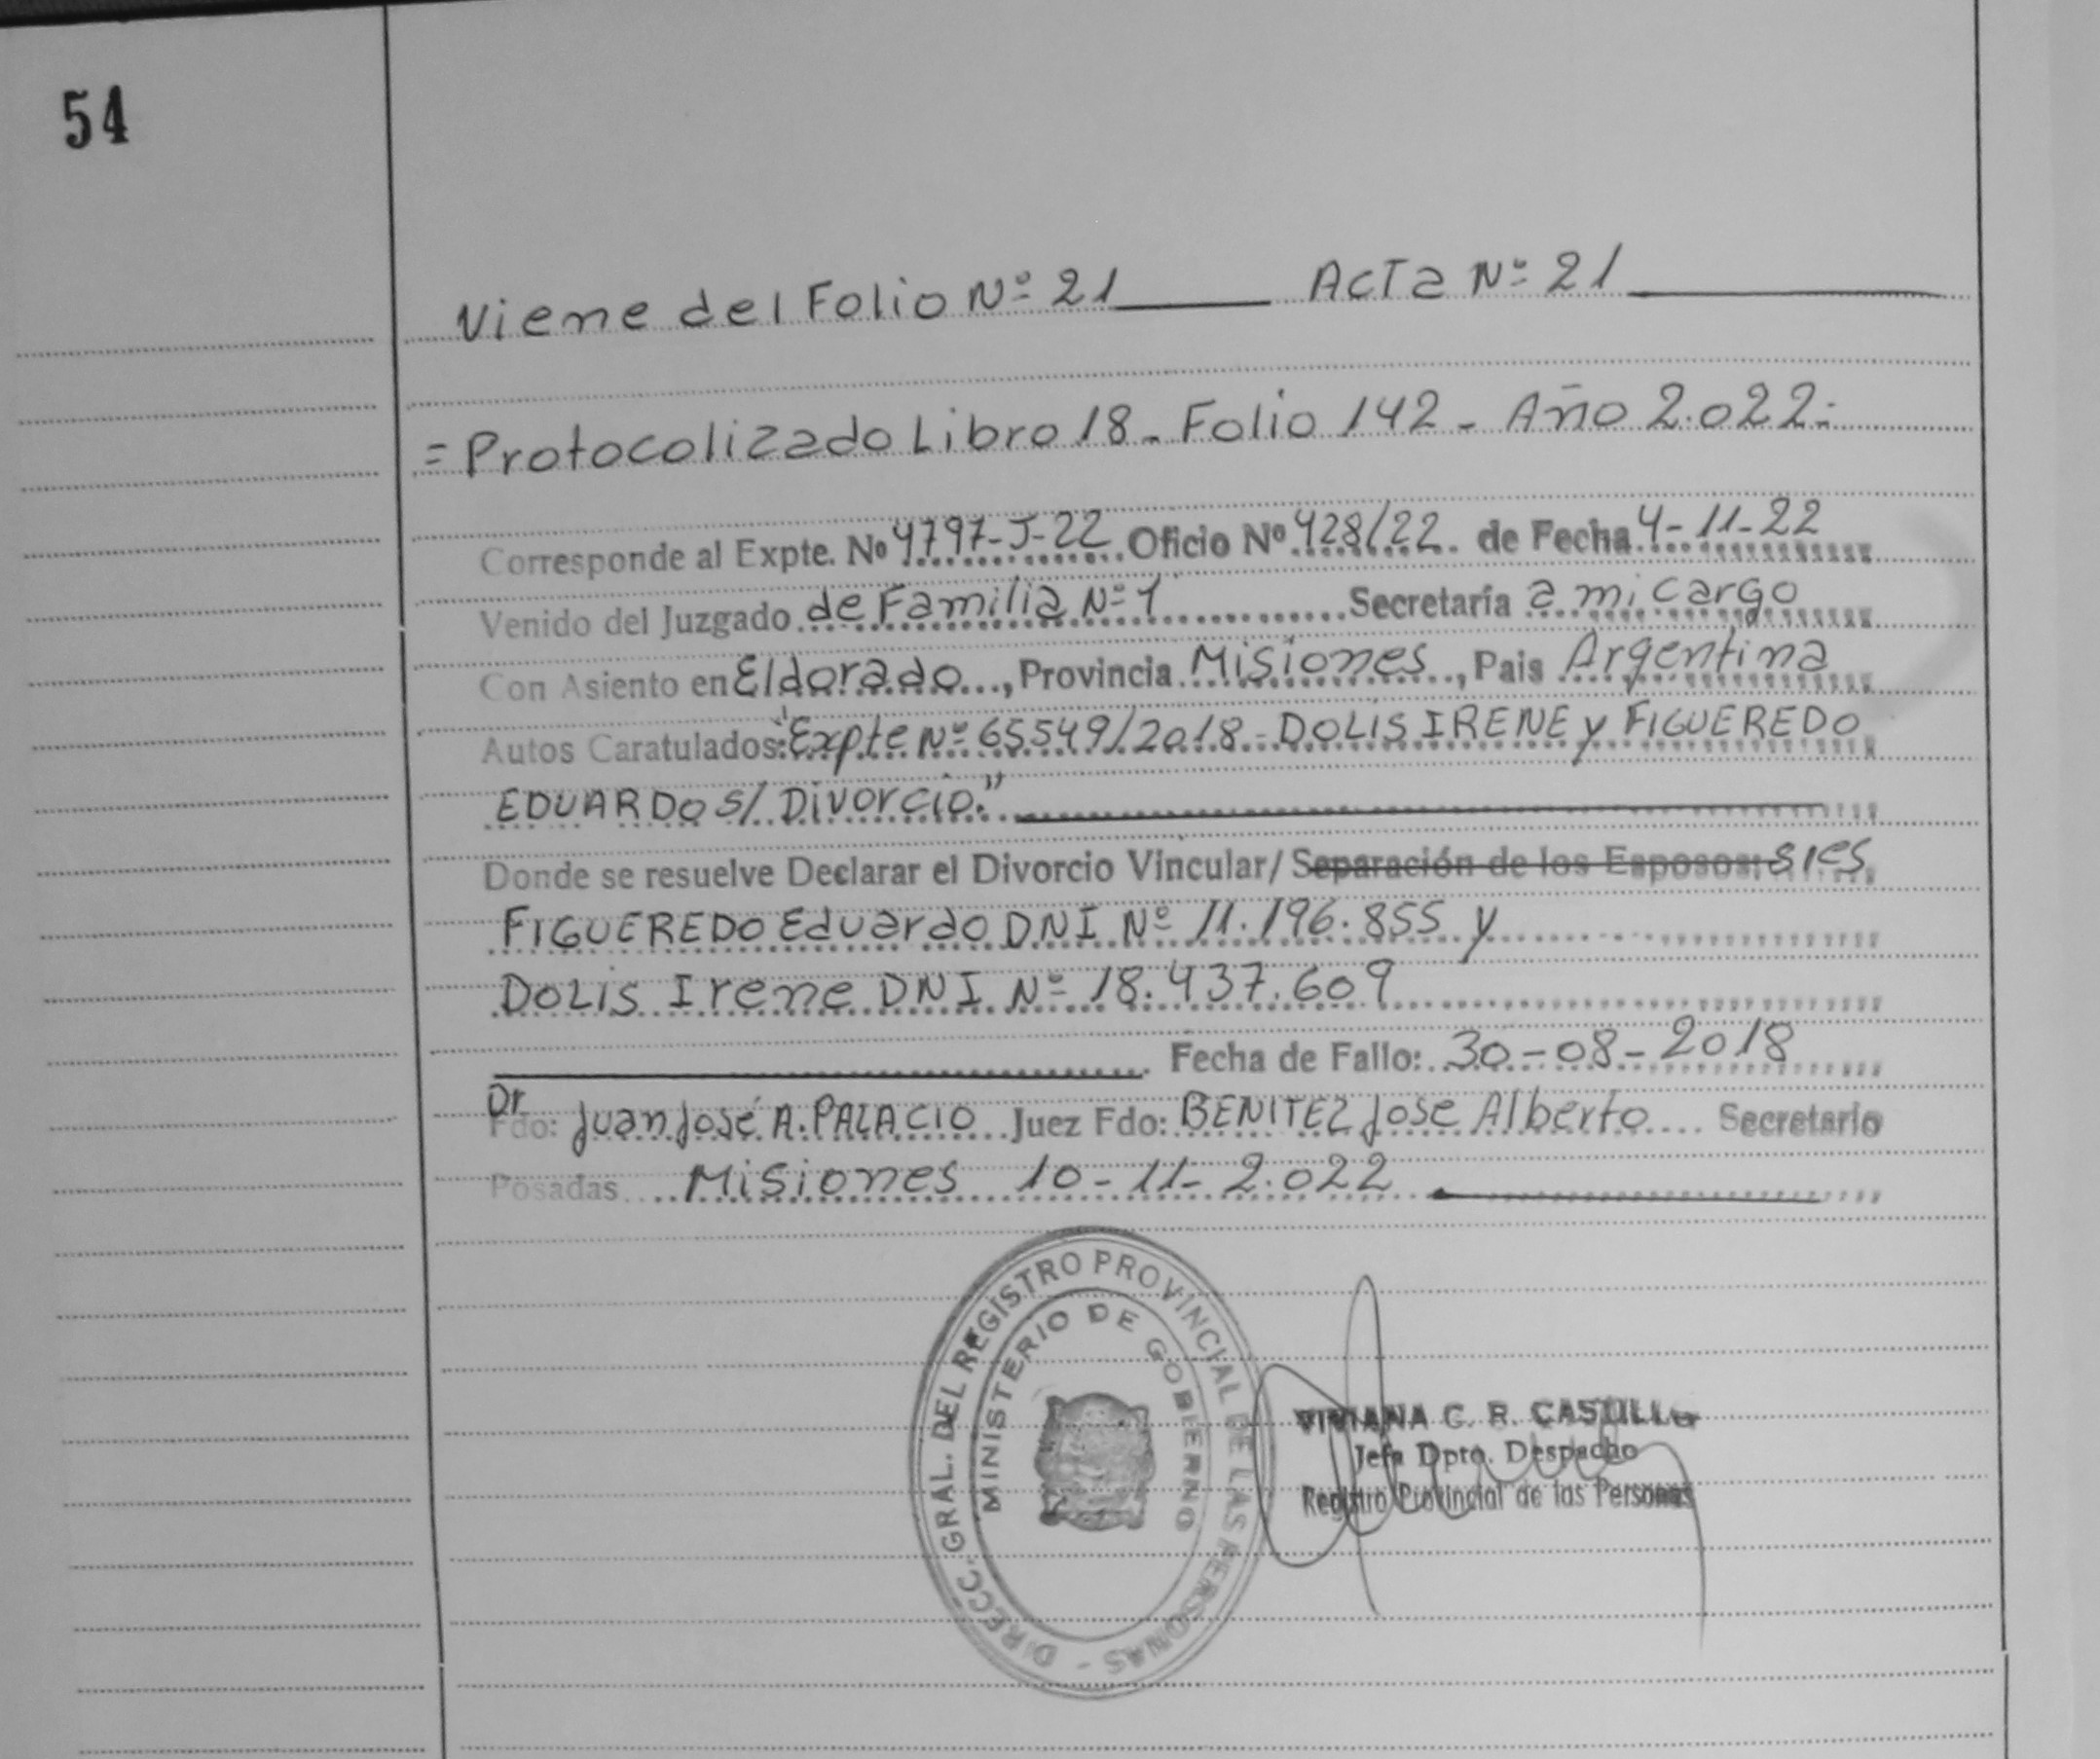 54
Viene del Folio Nº 21 Acta Nº 21
= Protocolizado Libro 18 - Folio 142 - Año 2.022-
Corresponde al Expte. Nº 4797-J-22 Oficio Nº 428/22 de Fecha 4-11-22
Venido del Juzgado de Familia Nº 1 Secretaría a mi cargo
Con Asiento en Eldorado, Provincia Misiones, Pais Argentina
Autos Caratulados: "Expte Nº 65549/2018 - DOLIS IRENE y FIGUEREDO
EDUARDO s/ Divorcio."
Donde se resuelve Declarar el Divorcio Vincular/ Separación de los Esposos: Sres
FIGUEREDO Eduardo DNI Nº 11.196.855 y
DOLIS Irene DNI Nº 18.437.609
Fecha de Fallo: 30-08-2018
Dr
Fdo: Juan José A. PALACIO Juez Fdo: BENITEZ Jose Alberto Secretario
Posadas Misiones 10-11-2.022
DIRECC. GRAL. DEL REGISTRO PROVINCIAL DE LAS PERSONAS -
MINISTERIO DE GOBIERNO
VIVIANA C. R. CASTILLO
Jefa Dpto. Despacho
Registro Provincial de las Personas